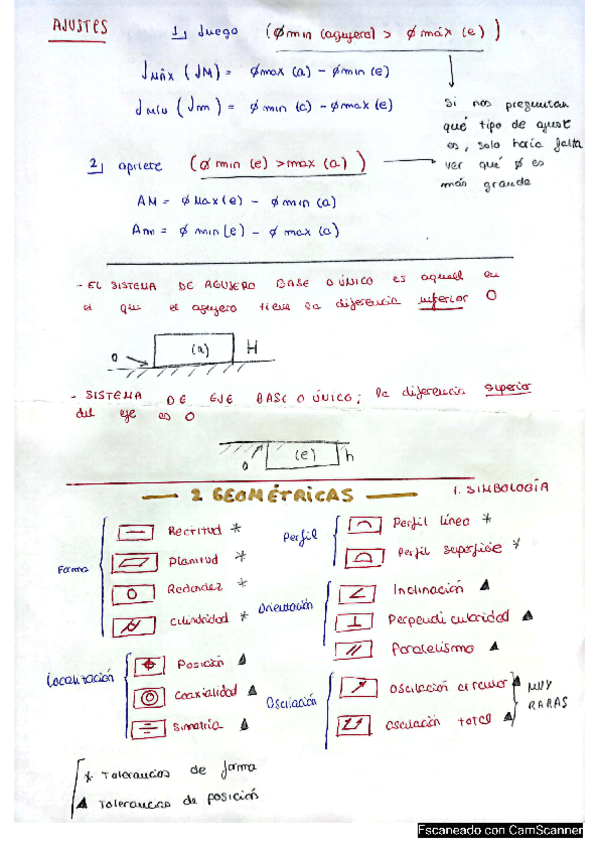 AJUSTES
1, Juego (Ømin (agujero) > Ø máx (e))
Jmáx (JM) = Ømax (a) - Ømin (e)
Jmín (Jm) = Ø min (a) - Ømax (e)
Si nos preguntan
qué tipo de ajuste
es, solo haría falta
ver qué Ø es
más grande
2, apriete (Ø min (e) > max (a))
AM = Ø Max (e) - Ø min (a)
Am = Ø min (e) - Ø max (a)
- EL SISTEMA DE AGUJERO BASE O ÚNICO es aquell en
el que el agujero tiene la diferencia inferior 0
0
(a)
H
- SISTEMA DE EJE BASE O ÚNICO; la diferencia superior
del eje es 0
0
(e)
h
2 GEOMÉTRICAS
1. SIMBOLOGÍA
Forma
Rectitud *
Planitud *
Redondez *
Cilindridad *
Perfil
Perfil línea *
Perfil superficie *
Orientación
Inclinación ▲
Perpendicularidad ▲
Paralelismo ▲
Localización
Posición ▲
Coaxialidad ▲
Simetría ▲
Oscilación
Oscilación circular ▲
Oscilación total ▲
MUY
RARAS
* Tolerancias de forma
▲ Tolerancias de posición
Escaneado con CamScanner